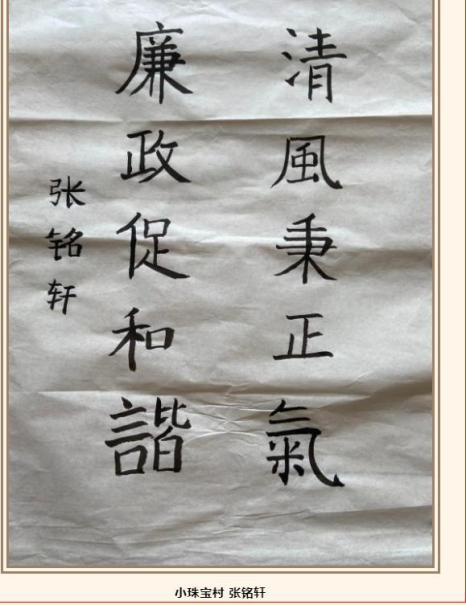 清風秉正氣
廉政促和諧
张铭轩
小珠宝村 张铭轩